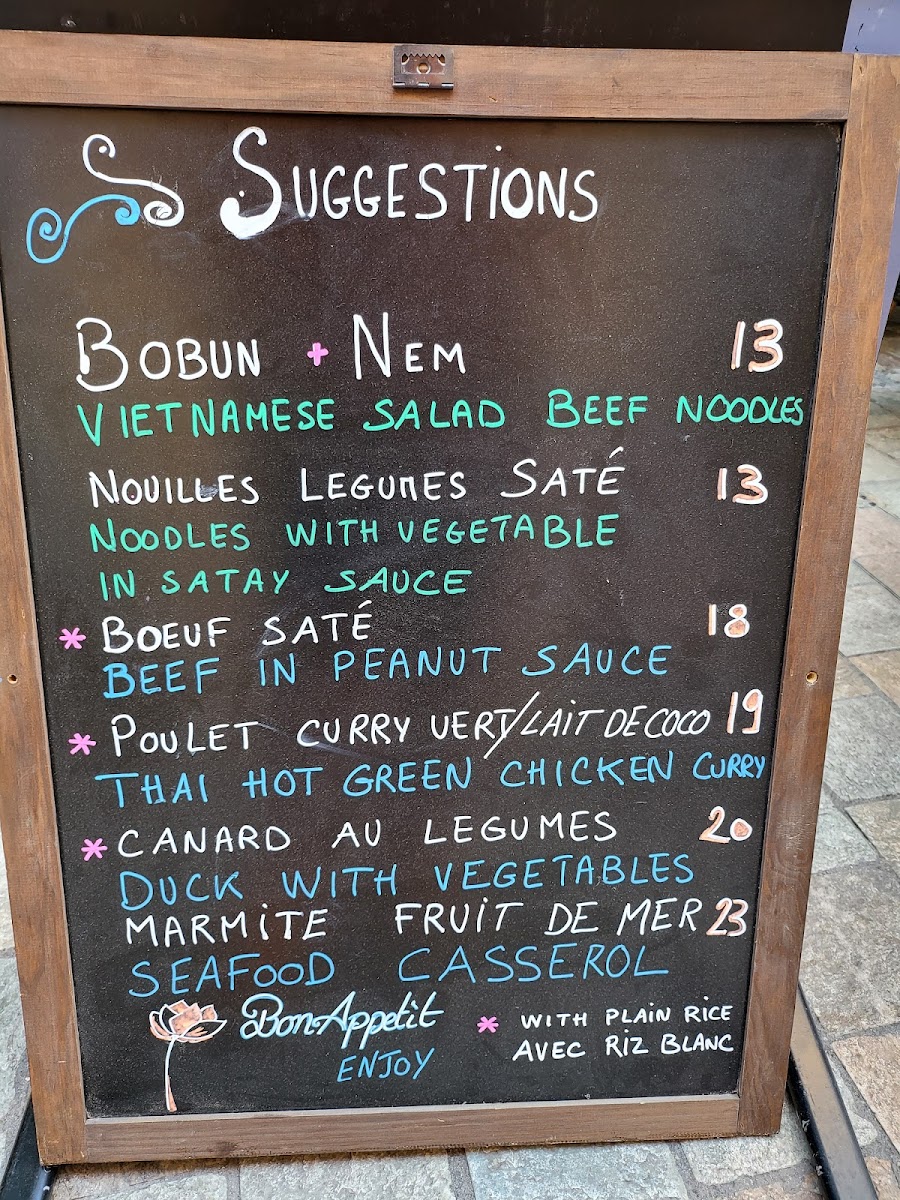 SUGGESTIONS
BOBUN + NEM 13
VIETNAMESE SALAD BEEF NOODLES
NOUILLES LEGUMES SATÉ 13
NOODLES WITH VEGETABLE
IN SATAY SAUCE
* BOEUF SATÉ 18
BEEF IN PEANUT SAUCE
* POULET CURRY VERT/LAIT DE COCO 19
THAI HOT GREEN CHICKEN CURRY
* CANARD AU LEGUMES 20
DUCK WITH VEGETABLES
MARMITE FRUIT DE MER 23
SEAFOOD CASSEROL
Bon Appetit
ENJOY
* WITH PLAIN RICE
AVEC RIZ BLANC